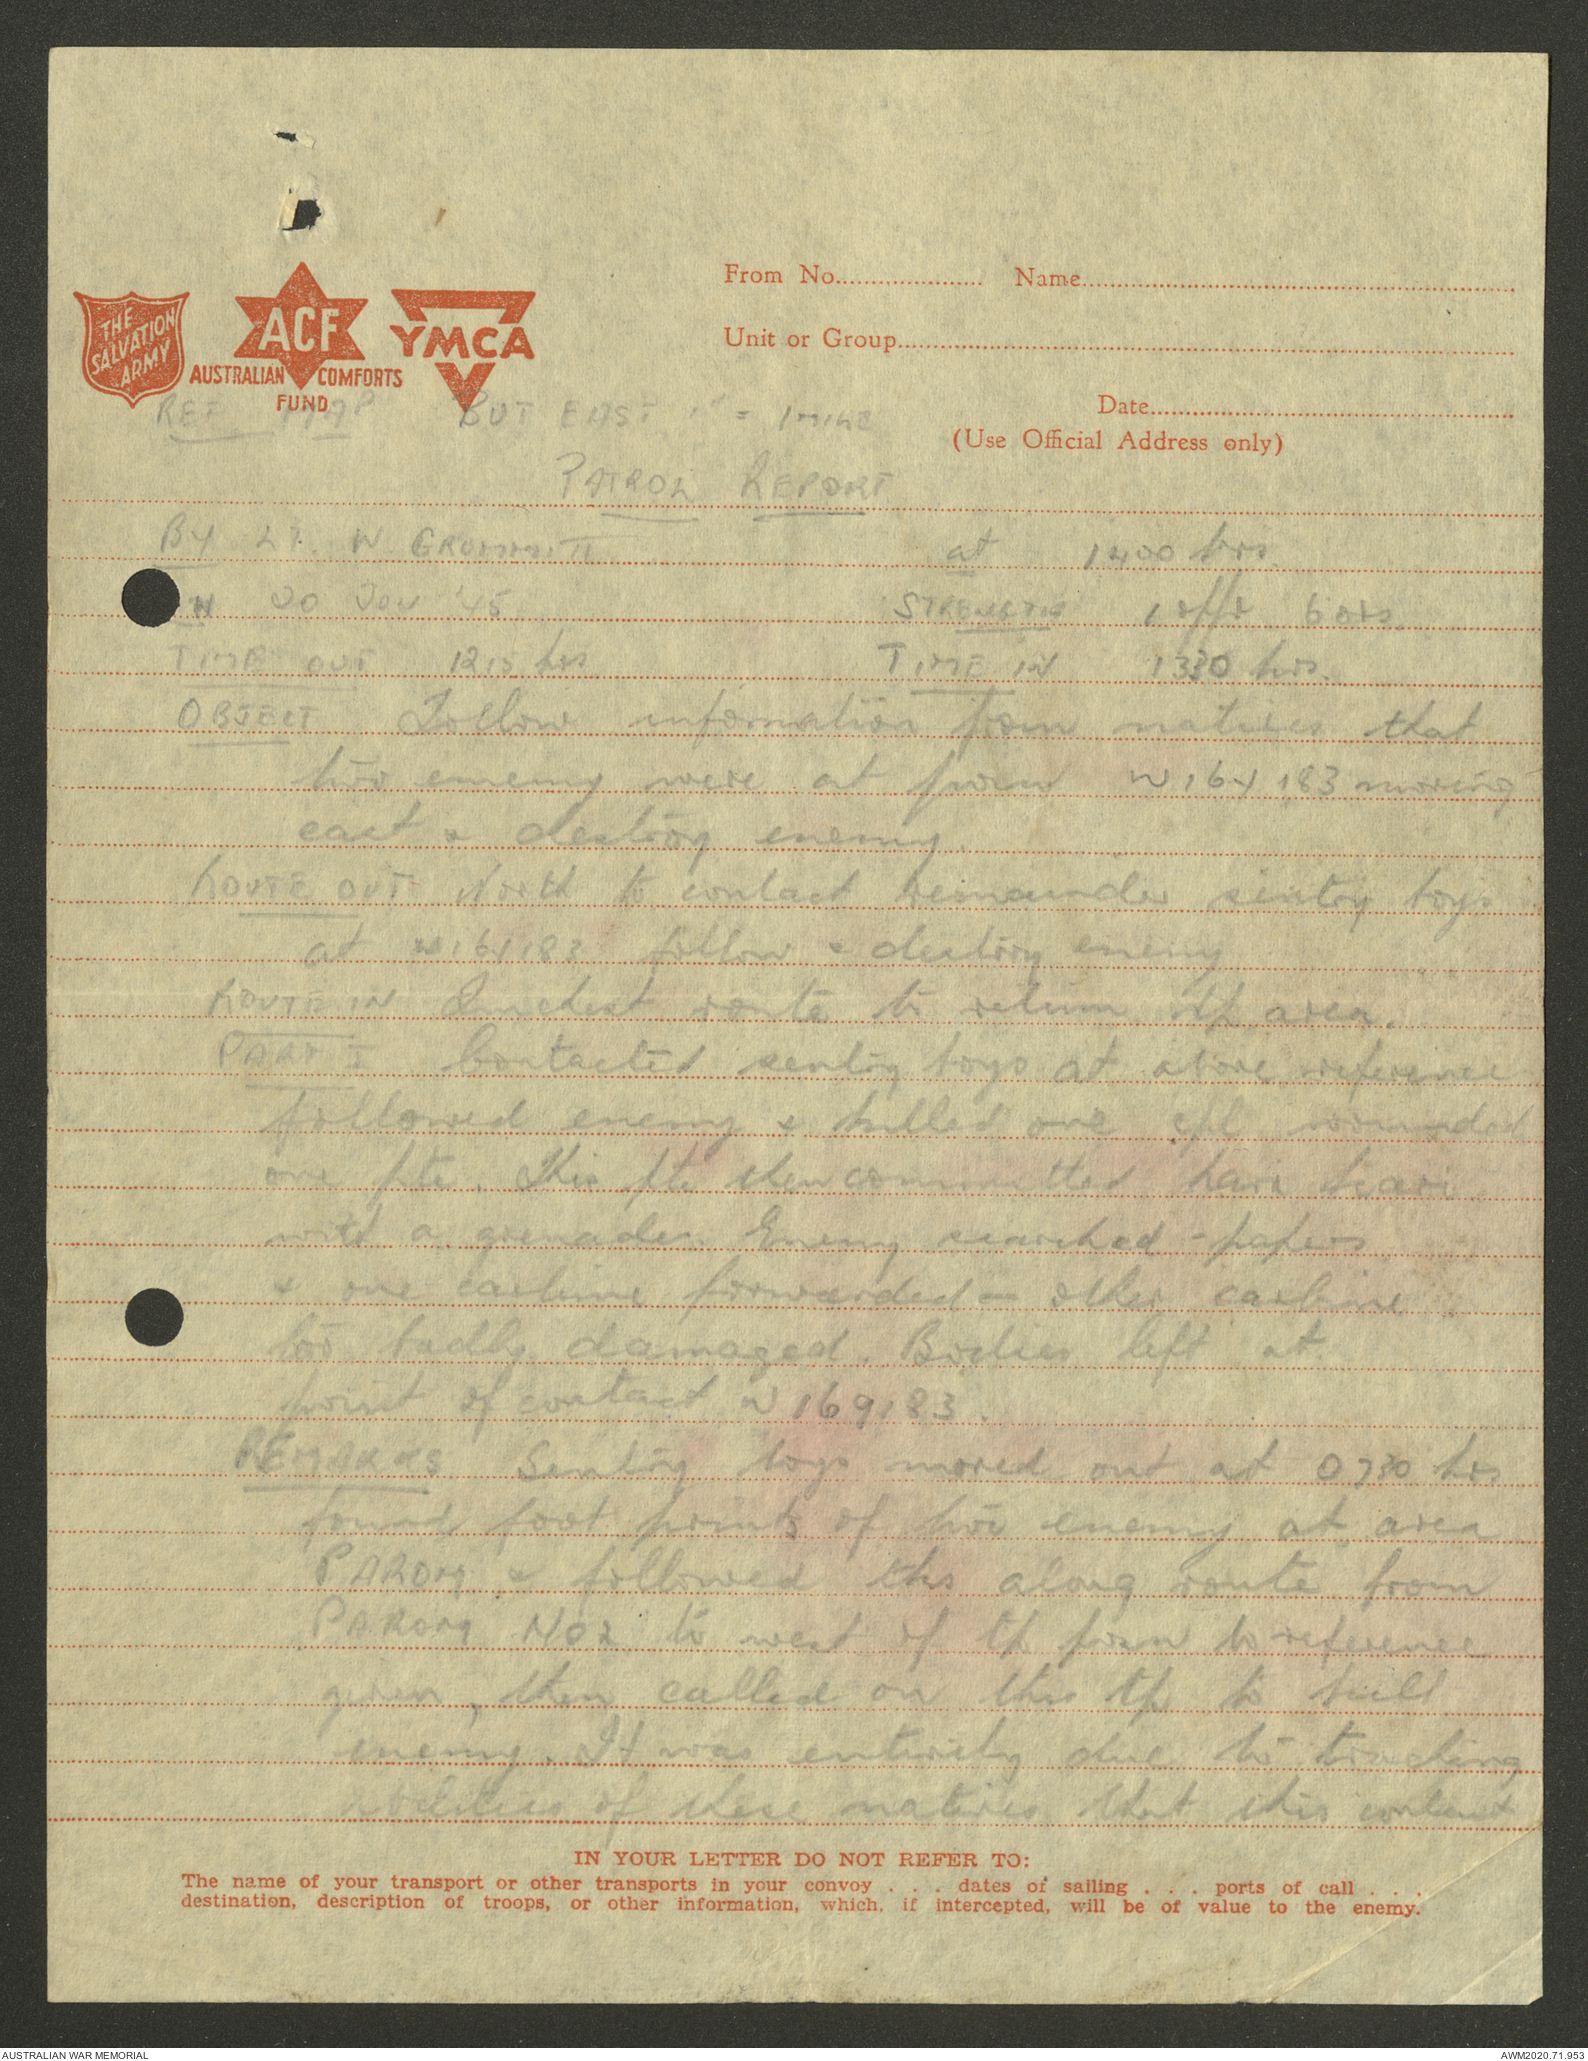 THE
SALVATION
ARMY
ACF
AUSTRALIAN COMFORTS
FUND
YMCA
From No. Name
Unit or Group
Date
(Use Official Address only)
REF MAP BUT EAST 1" = 1 MILE
PATROL REPORT
BY LT. W GRUMMITT at 1400 hrs.
20 '45 STRENGTH 1 offr 6 ors.
TIME OUT 1215 hrs TIME IN 1330 hrs.
OBJECT Follow information from natives that
two enemy were at W 164183 moving
east & destroy enemy.
ROUTE OUT North to contact remainder sentry boys
at W 164183 follow & destroy enemy
ROUTE IN Quickest route to return tp area.
PART I Contacted sentry boys at above reference
followed enemy & killed one cpl wounded
one pte. This pte then committed hari kari
with a grenade. Enemy searched - papers
& one carbine forwarded - other carbine
too badly damaged. Bodies left at
point of contact W 169183.
REMARKS Sentry boys moved out at 0730 hrs
found foot prints of two enemy at area
PAROM & followed this along route from
PAROM NO2 to west of tp to reference
given, then called on this tp to kill
enemy. It was entirely due to tracking
abilities of these natives that this contact
IN YOUR LETTER DO NOT REFER TO:
The name of your transport or other transports in your convoy . . . dates of sailing . . . ports of call . . .
destination, description of troops, or other information, which, if intercepted, will be of value to the enemy.
AUSTRALIAN WAR MEMORIAL AWM2020.71.953